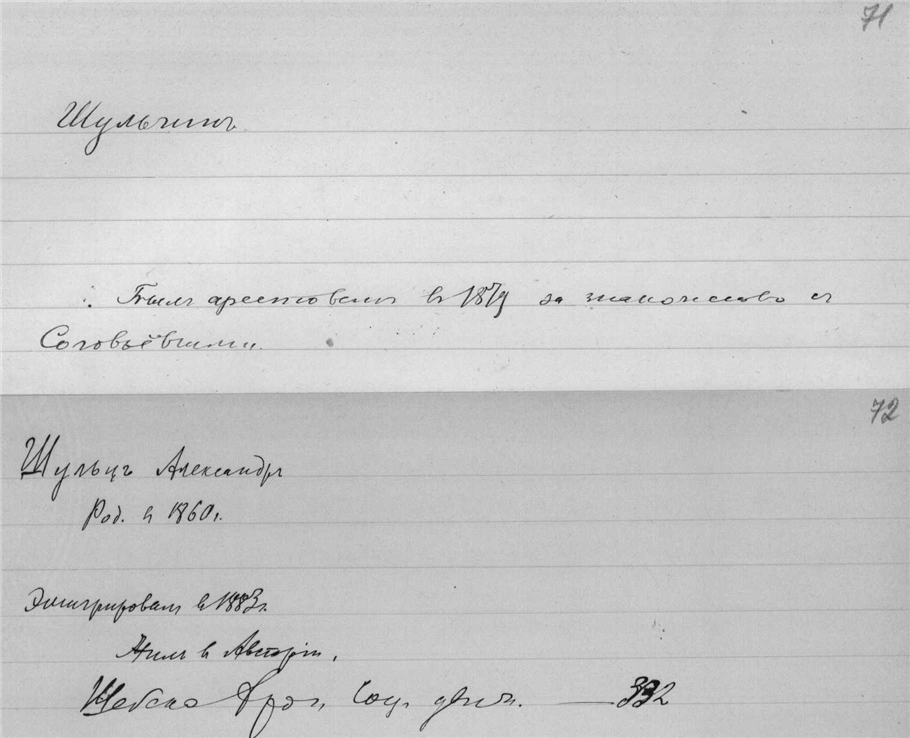 71
Шульгинъ
Былъ арестованъ въ 1879 за знакомство съ
Соловьёвыми.
72
Шульцъ Александръ
Род. въ 1860 г.
Эмигрировалъ въ 1883 г.
Жилъ въ Австріи.
Соц. движ. — 332